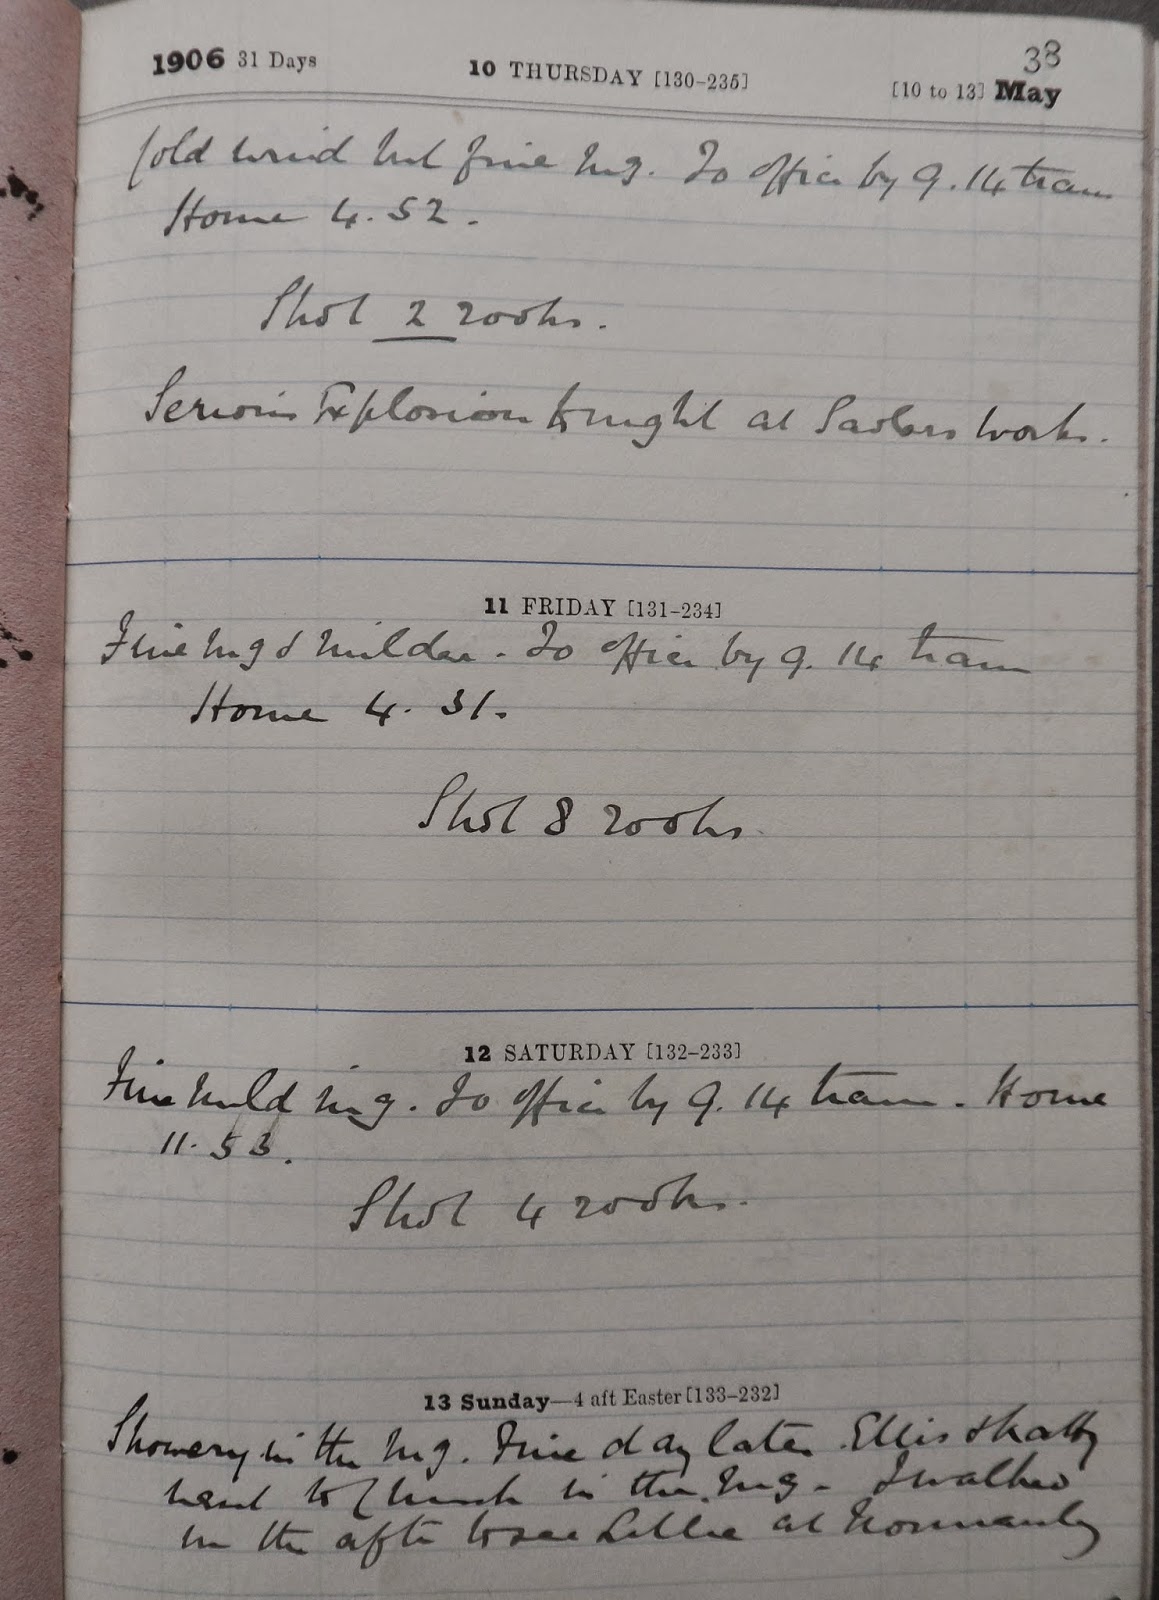 38
1906 31 Days 10 THURSDAY [130-235] [10 to 13] May
Cold wind but fine mg. To office by 9.14 tram
Home 4.52.
Shot 2 rooks.
Serious Explosion tonight at Sadlers works.
11 FRIDAY [131-234]
Fine mg & milder. To office by 9.14 tram
Home 4.31.
Shot 8 rooks.
12 SATURDAY [132-233]
Fine mild mg. To office by 9.14 tram. Home
11.53.
Shot 4 rooks.
13 Sunday—4 aft Easter [133-232]
Showery in the mg. Fine day later. Ellis & Katty
went to Church in the mg. I walked
in the aftn to see Lillie at Normanby